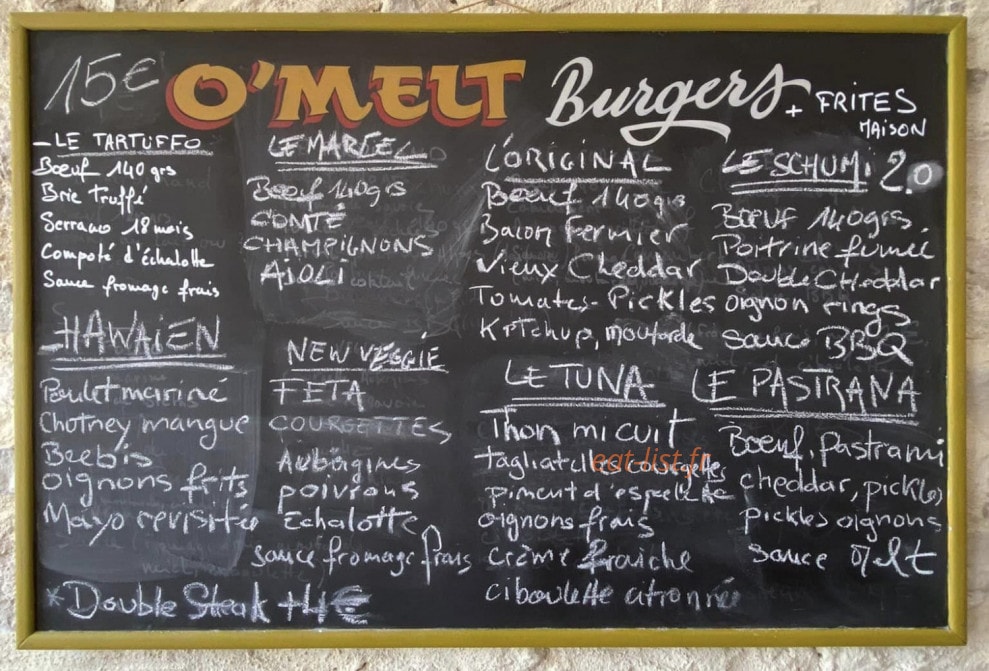 15€ O'MELT Burgers + FRITES
MAISON
- LE TARTUFFO
Bœuf 140 grs
Brie Truffé
Serrano 18 mois
Compoté d'échalotte
Sauce fromage frais
LE MARCEL
Bœuf 140grs
COMTÉ
CHAMPIGNONS
AïOLi
L'ORIGINAL
Bœuf 140grs
Bacon Fermier
Vieux Cheddar
Tomates - Pickles
Ketchup, moutarde
LE SCHUMI 2.0
BŒUF 140grs
Poitrine fumée
Double Cheddar
oignon rings
Sauce BBQ
- HAWAiEN
Poulet mariné
Chotney mangue
Brebis
oignons frits
Mayo revisitée
NEW VÉGGIÉ
FETA
COURGETTES
Aubergines
poivrons
Echalotte
sauce fromage frais
LE TUNA
Thon mi cuit
tagliatelles courgettes
piment d'espelette
oignons frais
crème fraiche
ciboulette citronnée
LE PASTRANA
Bœuf, Pastrami
cheddar, pickles
Pickles oignons
sauce O'Melt
* Double Steak +4€
eat-list.fr